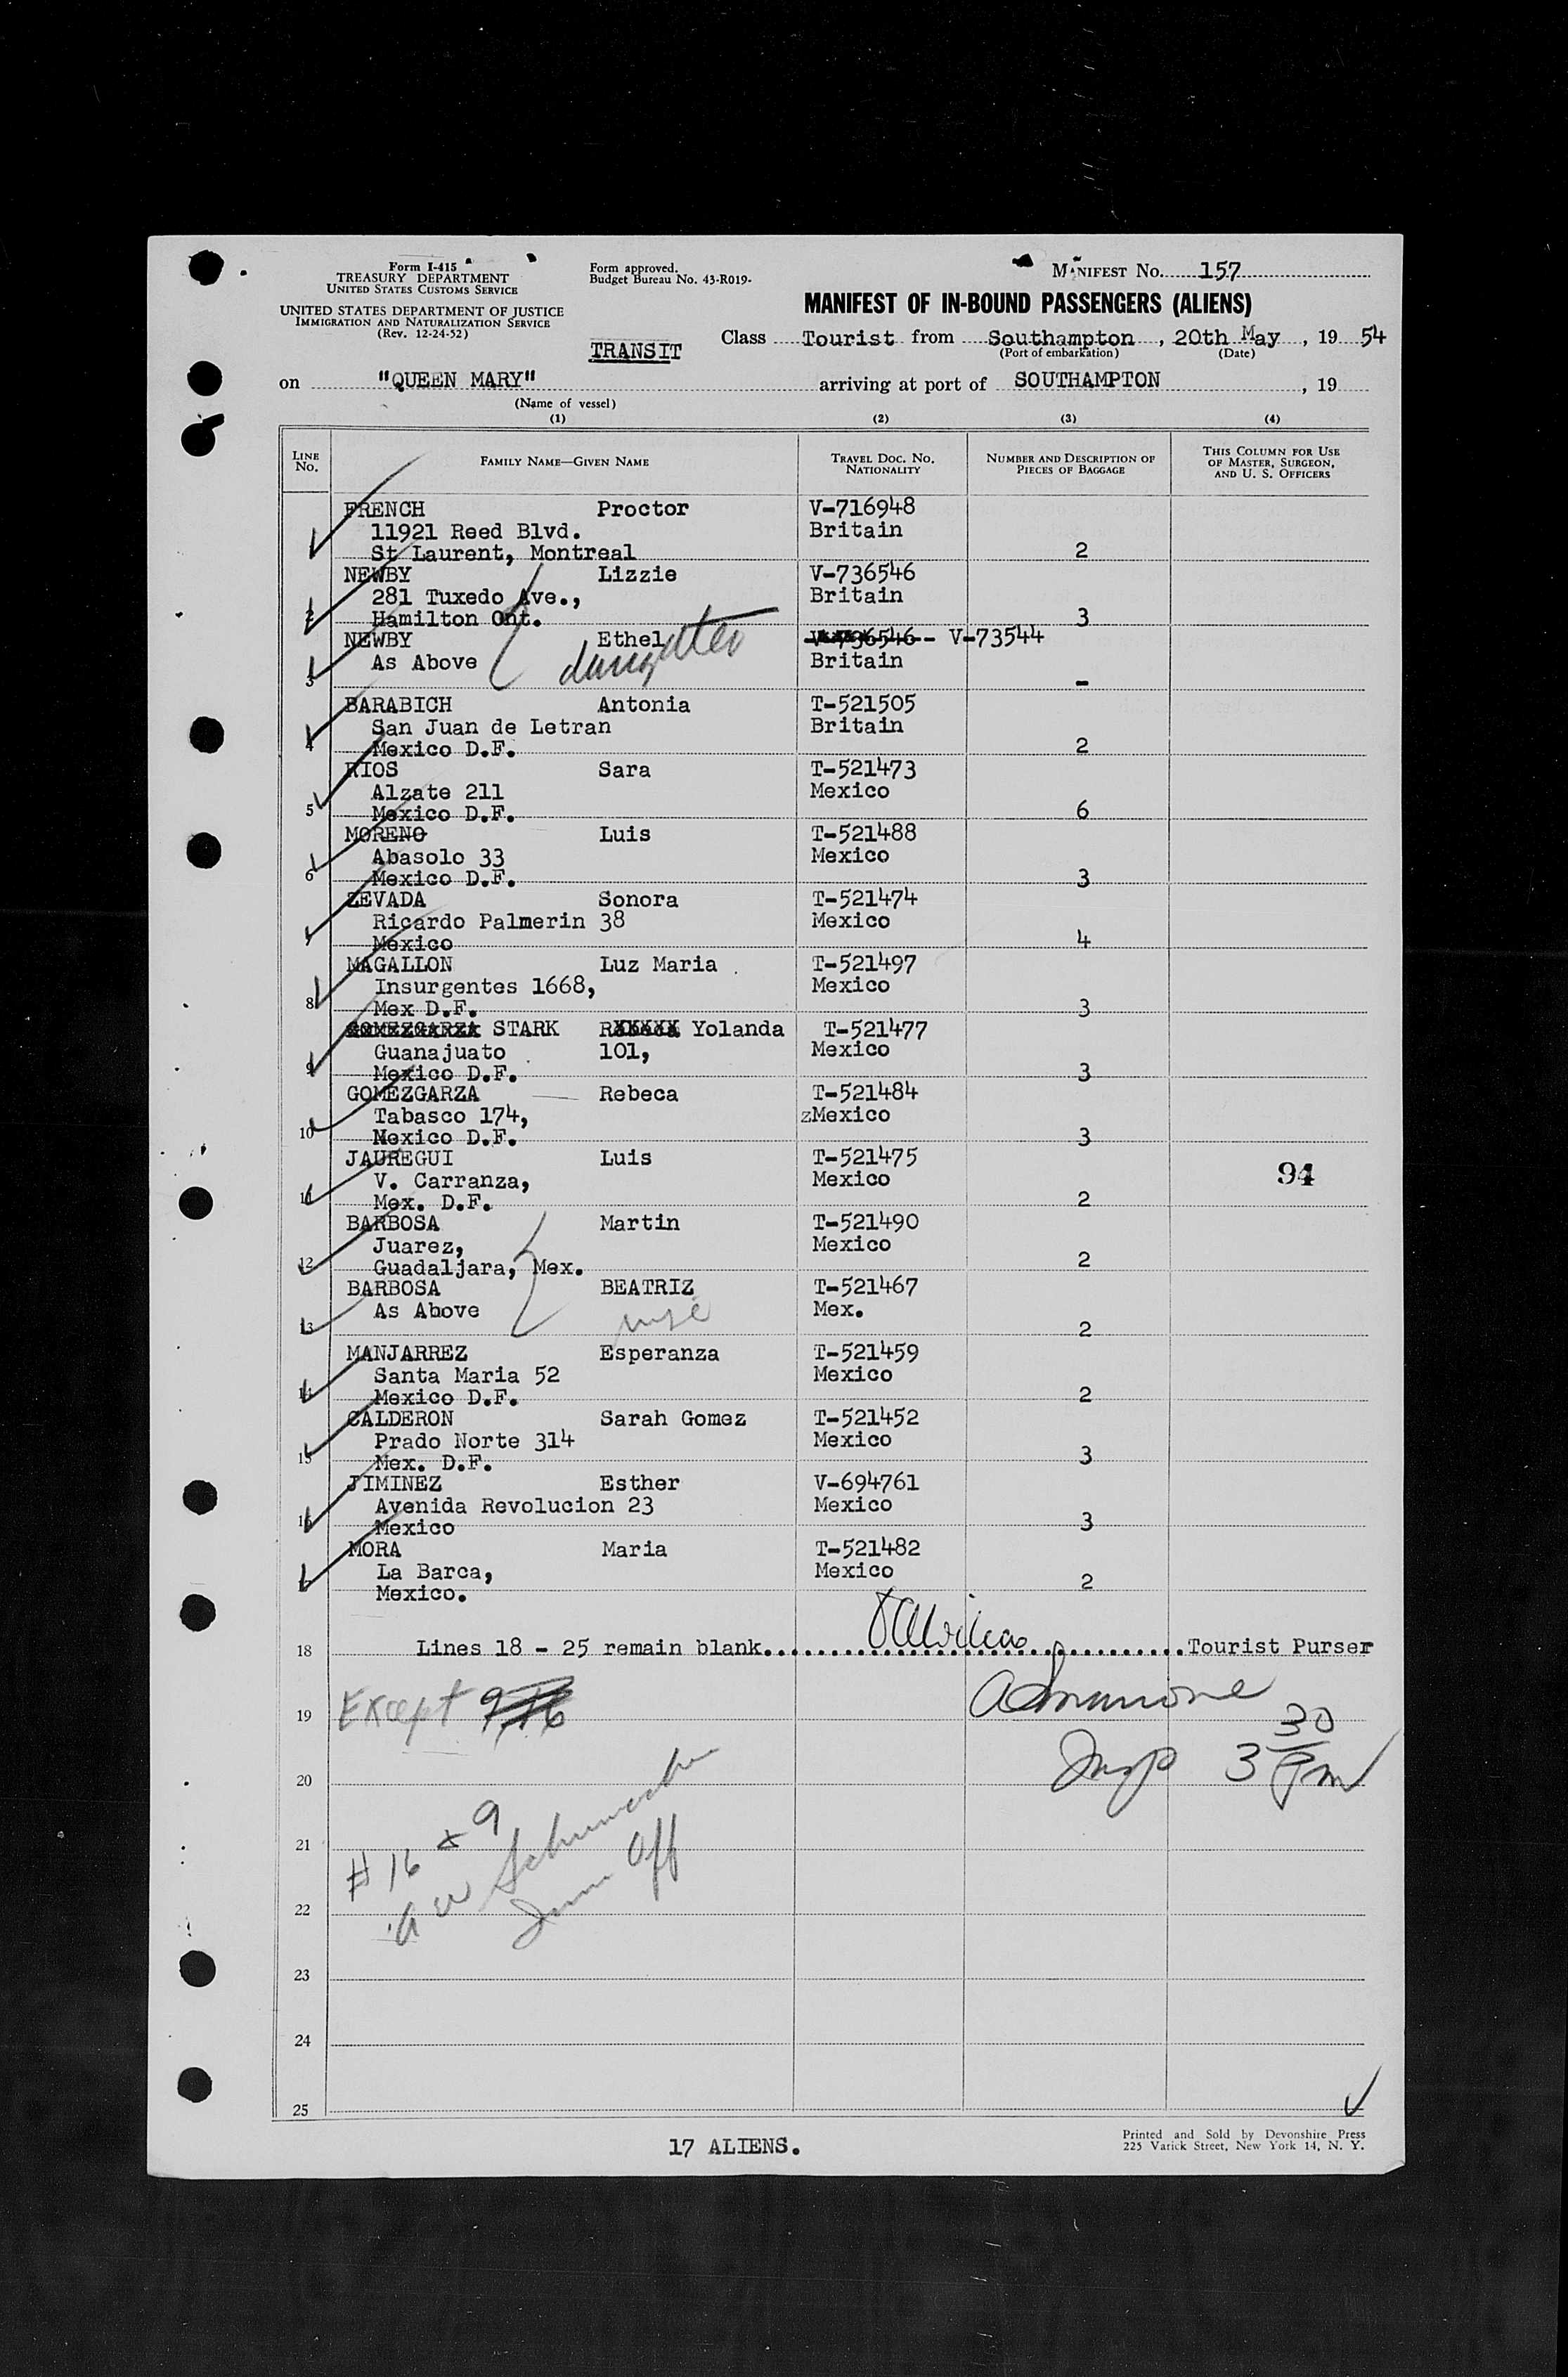 Form I-415
TREASURY DEPARTMENT
UNITED STATES CUSTOMS SERVICE
UNITED STATES DEPARTMENT OF JUSTICE
IMMIGRATION AND NATURALIZATION SERVICE
(Rev. 12-24-52)
Form approved.
Budget Bureau No. 43-R019-
MANIFEST No. 157
MANIFEST OF IN-BOUND PASSENGERS (ALIENS)
TRANSIT
Class Tourist from Southampton, 20th May, 19 54
(Port of embarkation) (Date)
on "QUEEN MARY" arriving at port of SOUTHAMPTON, 19
(Name of vessel)
(1) (2) (3) (4)
LINE No. FAMILY NAME—GIVEN NAME TRAVEL DOC. No. NATIONALITY NUMBER AND DESCRIPTION OF PIECES OF BAGGAGE THIS COLUMN FOR USE OF MASTER, SURGEON, AND U. S. OFFICERS
FRENCH Proctor V-716948
11921 Reed Blvd. Britain
St Laurent, Montreal 2
NEWBY Lizzie V-736546
281 Tuxedo Ave., Britain
2 Hamilton Ont. 3
NEWBY Ethel V-736546 V-73544
As Above daughter Britain
3 -
BARABICH Antonia T-521505
San Juan de Letran Britain
4 Mexico D.F. 2
RIOS Sara T-521473
Alzate 211 Mexico
5 Mexico D.F. 6
MORENO Luis T-521488
Abasolo 33 Mexico
6 Mexico D.F. 3
ZEVADA Sonora T-521474
Ricardo Palmerin 38 Mexico
7 Mexico 4
MAGALLON Luz Maria T-521497
Insurgentes 1668, Mexico
8 Mex D.F. 3
GOMEZGARZA STARK Rebeca Yolanda T-521477
Guanajuato 101, Mexico
9 Mexico D.F. 3
GOMEZGARZA Rebeca T-521484
Tabasco 174, zMexico
10 Mexico D.F. 3
JAUREGUI Luis T-521475
V. Carranza, Mexico 94
11 Mex. D.F. 2
BARBOSA Martin T-521490
Juarez, Mexico
12 Guadaljara, Mex. 2
BARBOSA BEATRIZ T-521467
As Above Mex.
13 2
MANJARREZ Esperanza T-521459
Santa Maria 52 Mexico
14 Mexico D.F. 2
CALDERON Sarah Gomez T-521452
Prado Norte 314 Mexico
15 Mex. D.F. 3
JIMINEZ Esther V-694761
Avenida Revolucion 23 Mexico
16 Mexico 3
MORA Maria T-521482
La Barca, Mexico
17 Mexico. 2
18 Lines 18 - 25 remain blank. Tourist Purser
19 Except 9, 16
Insp 3 30 pm
20
21 # 16 x 9
22 Imm Off
23
24
25
17 ALIENS.
Printed and Sold by Devonshire Press
225 Varick Street, New York 14, N. Y.